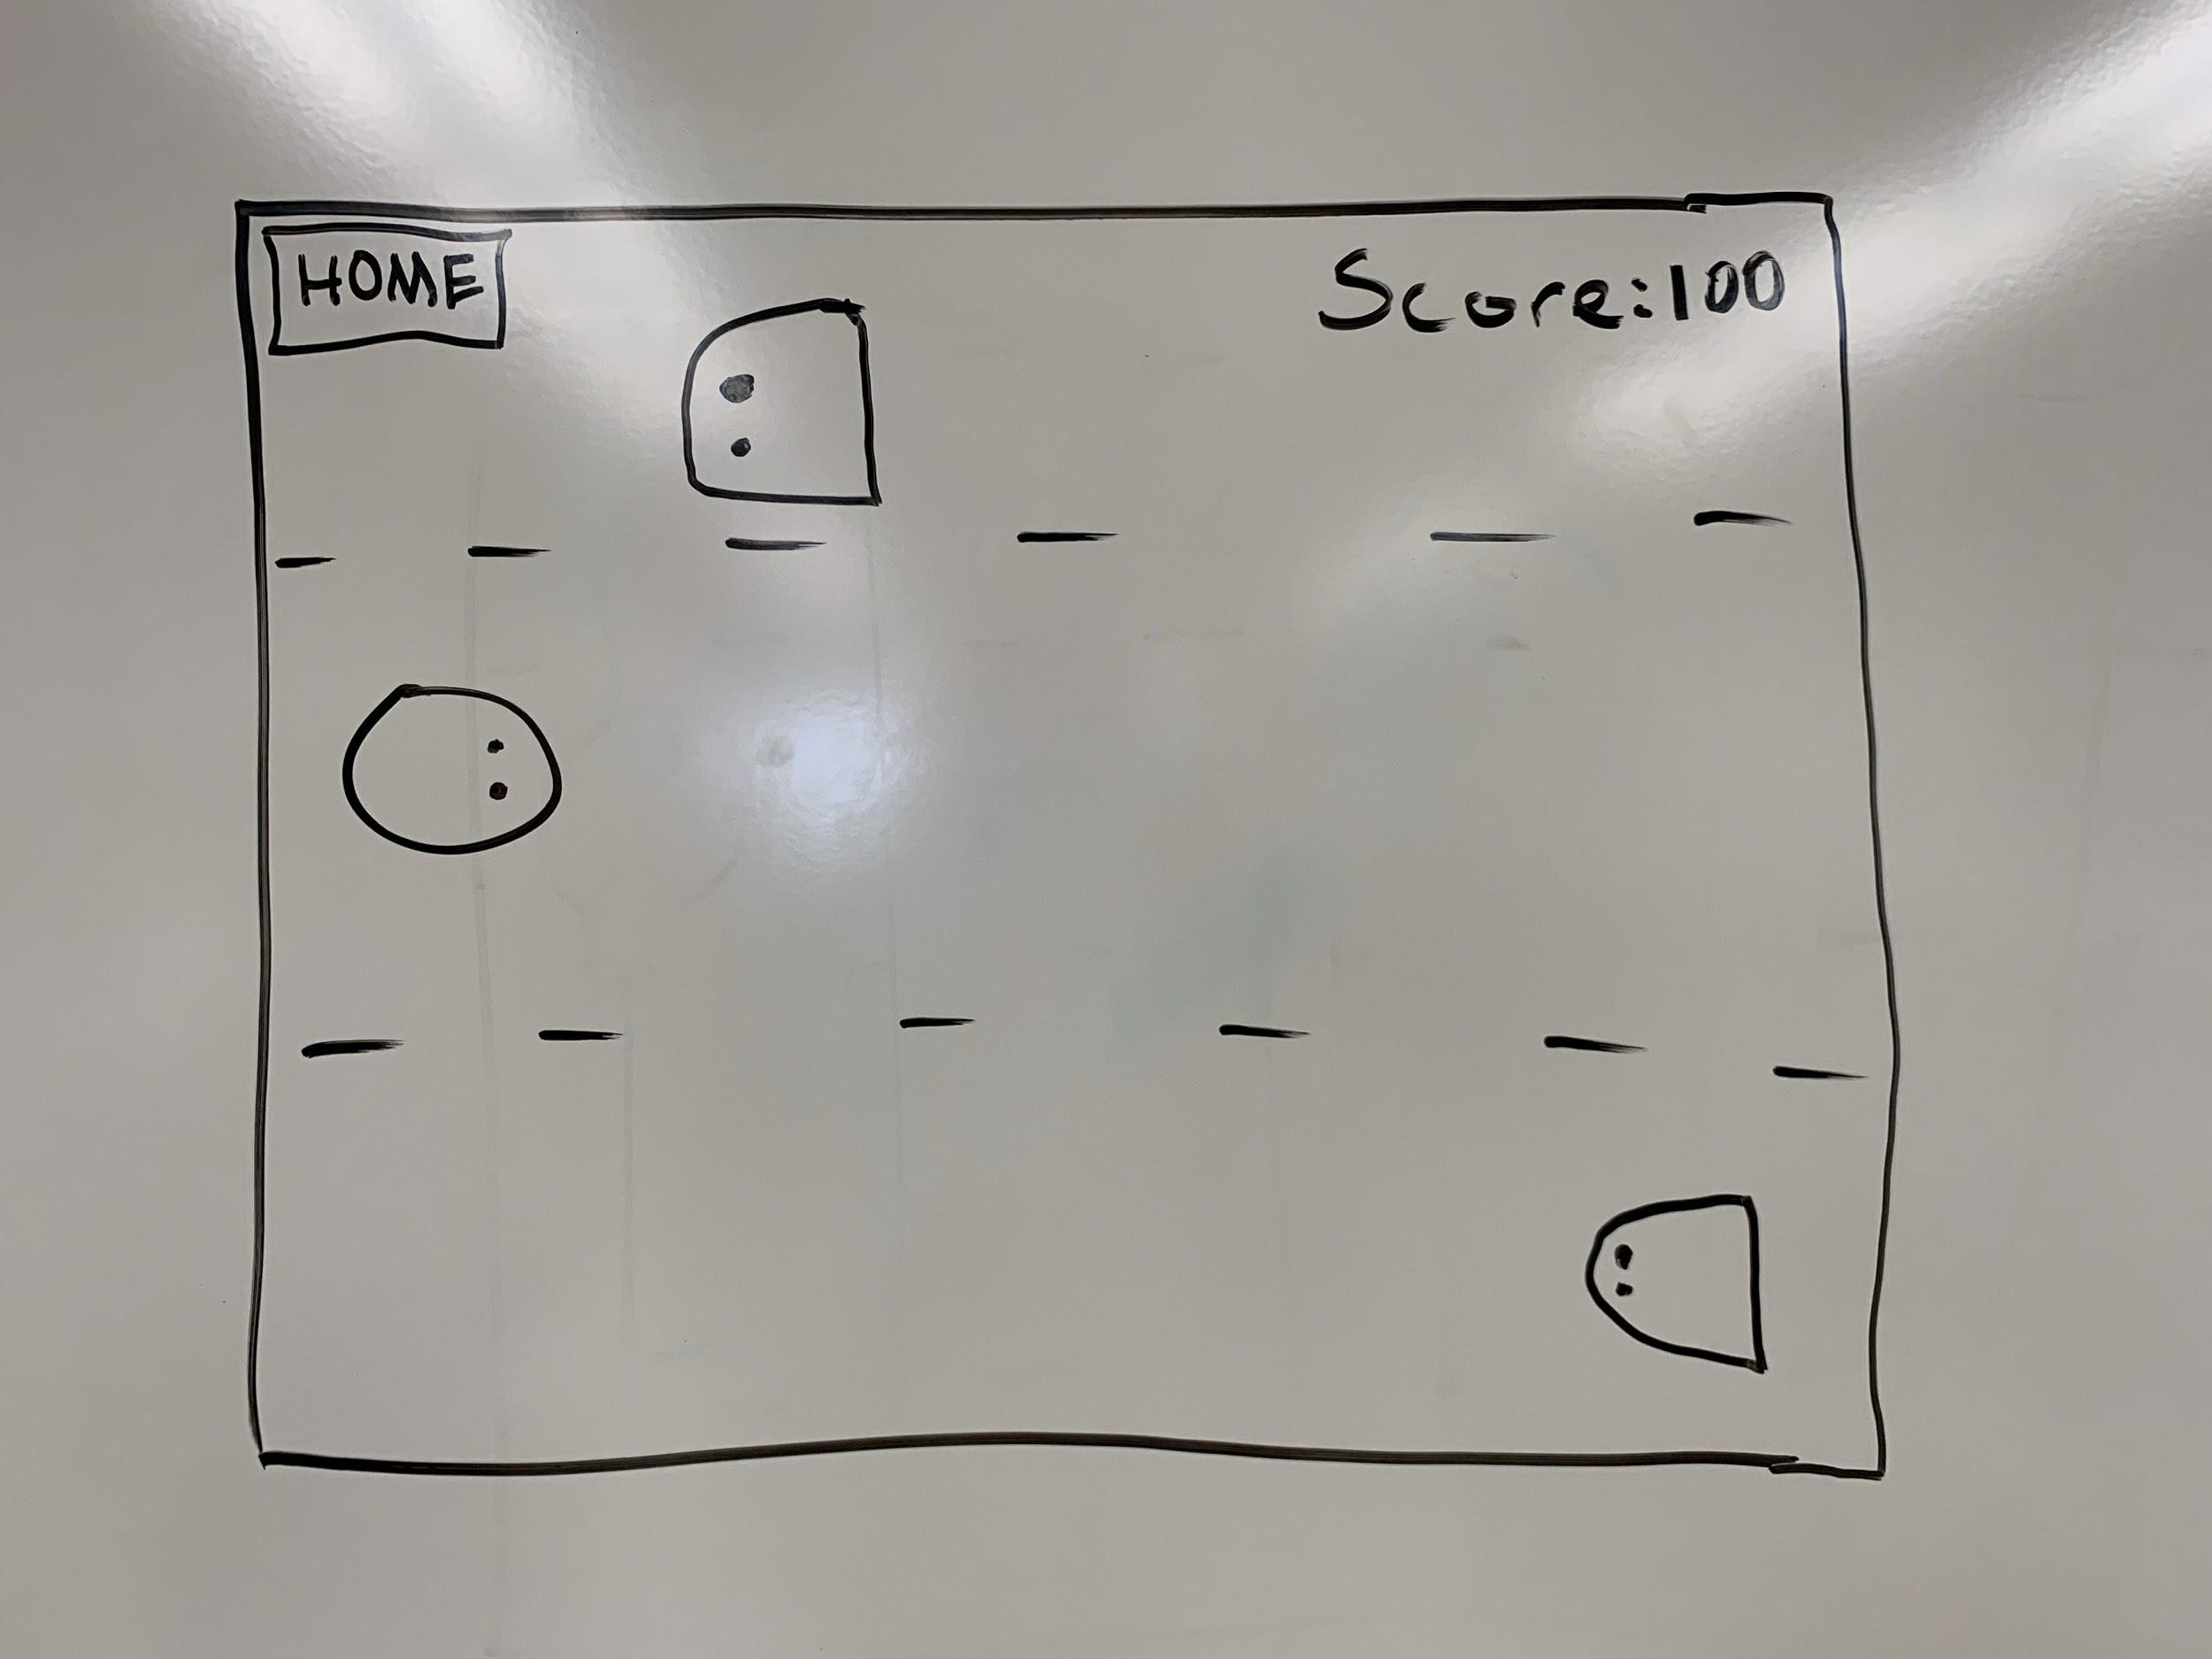 HOME
Score:100